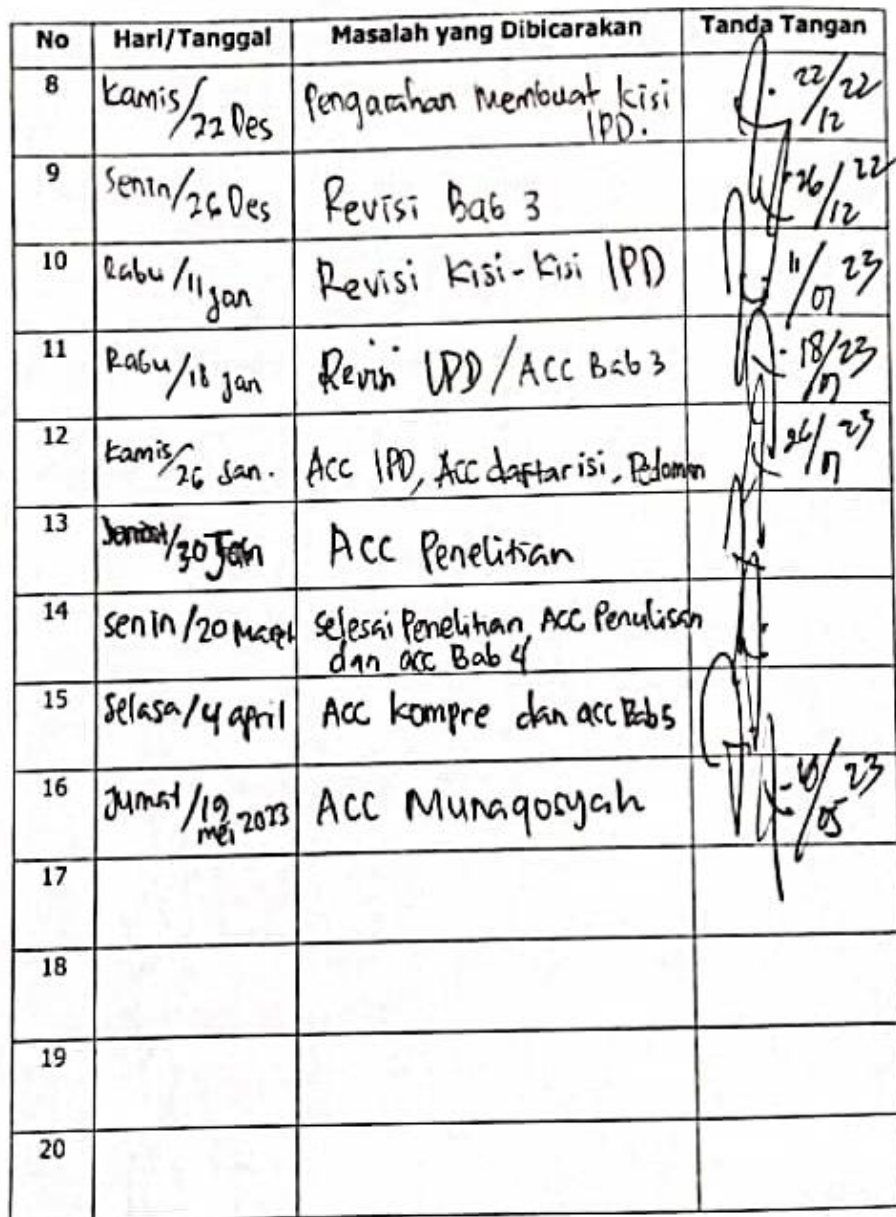 No Hari/Tanggal Masalah yang Dibicarakan Tanda Tangan
8 Kamis/22 Des Pengarahan Membuat kisi IPD. 22/12 22
9 Senin/26 Des Revisi Bab 3 26/12 22
10 Rabu/11 jan Revisi Kisi-Kisi IPD 11/01 23
11 Rabu/18 jan Revisi IPD/ACC Bab 3 18/01 23
12 Kamis/26 Jan. Acc IPD, Acc daftar isi, Pedoman 26/01 23
13 /30 Jan ACC Penelitian
14 Senin/20 Maret Selesai Penelitian, Acc Penulisan
dan acc Bab 4
15 Selasa/4 april Acc kompre dan acc Bab 5
16 Jumat/19 mei 2023 ACC Munaqosyah /05 23
17
18
19
20